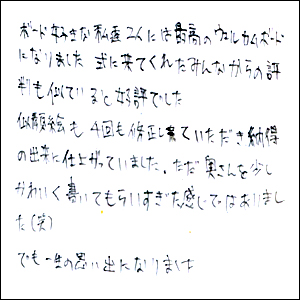 ボード好きな私達2人には最高のウェルカムボード
になりました 式に来てくれたみんなからの評
判も似ていると好評でした
似顔絵も4回も修正して頂いただき納得
の出来に仕上がっていました。ただ奥さんを少し
かわいく書いてもらいすぎた感じではありまし
た(笑)
でも一生の思い出になりました